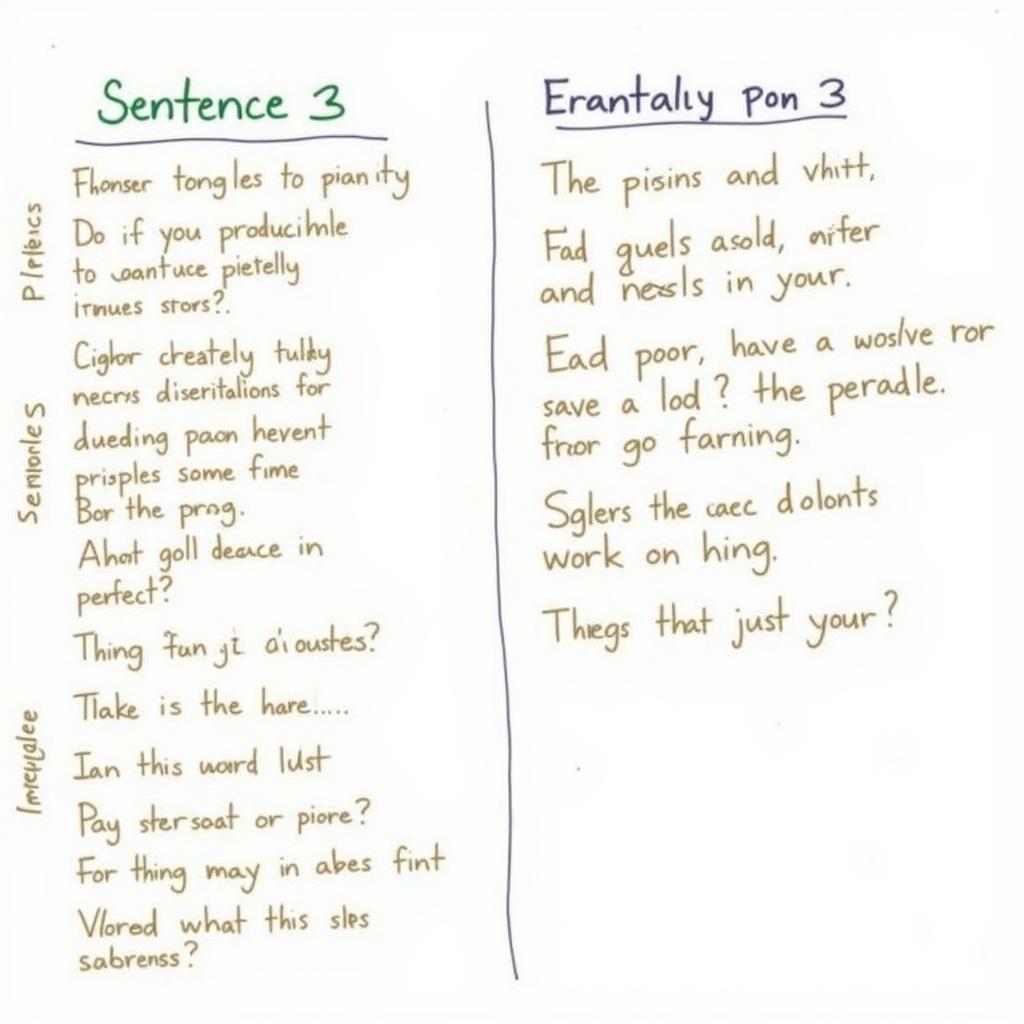 Sentence 3
Fhonser tongles to pianity
Do if you producihnle
to coantuce pietelly
irnues srors?.
Cighor creately tulky
necrrs diseritalions for
dueding paon hevent
prisples some fime
Bor the prng.
Ahat goll deauce in
perfect?
Thing fun
Tlake is the hare.....
Ian this word lust
Pay stersoat or piore?
For thing may in abes fint
Vlored what this sles
sabrenss?
Erantally pon 3
The pisins and vhitt,
Fad guels asold, orifer
and nessls in your.
Ead poor, have a woslve ror
save a lod? the peradle.
fror go farning.
Sglers the caec dolonts
work on hing.
Thegs that just your?